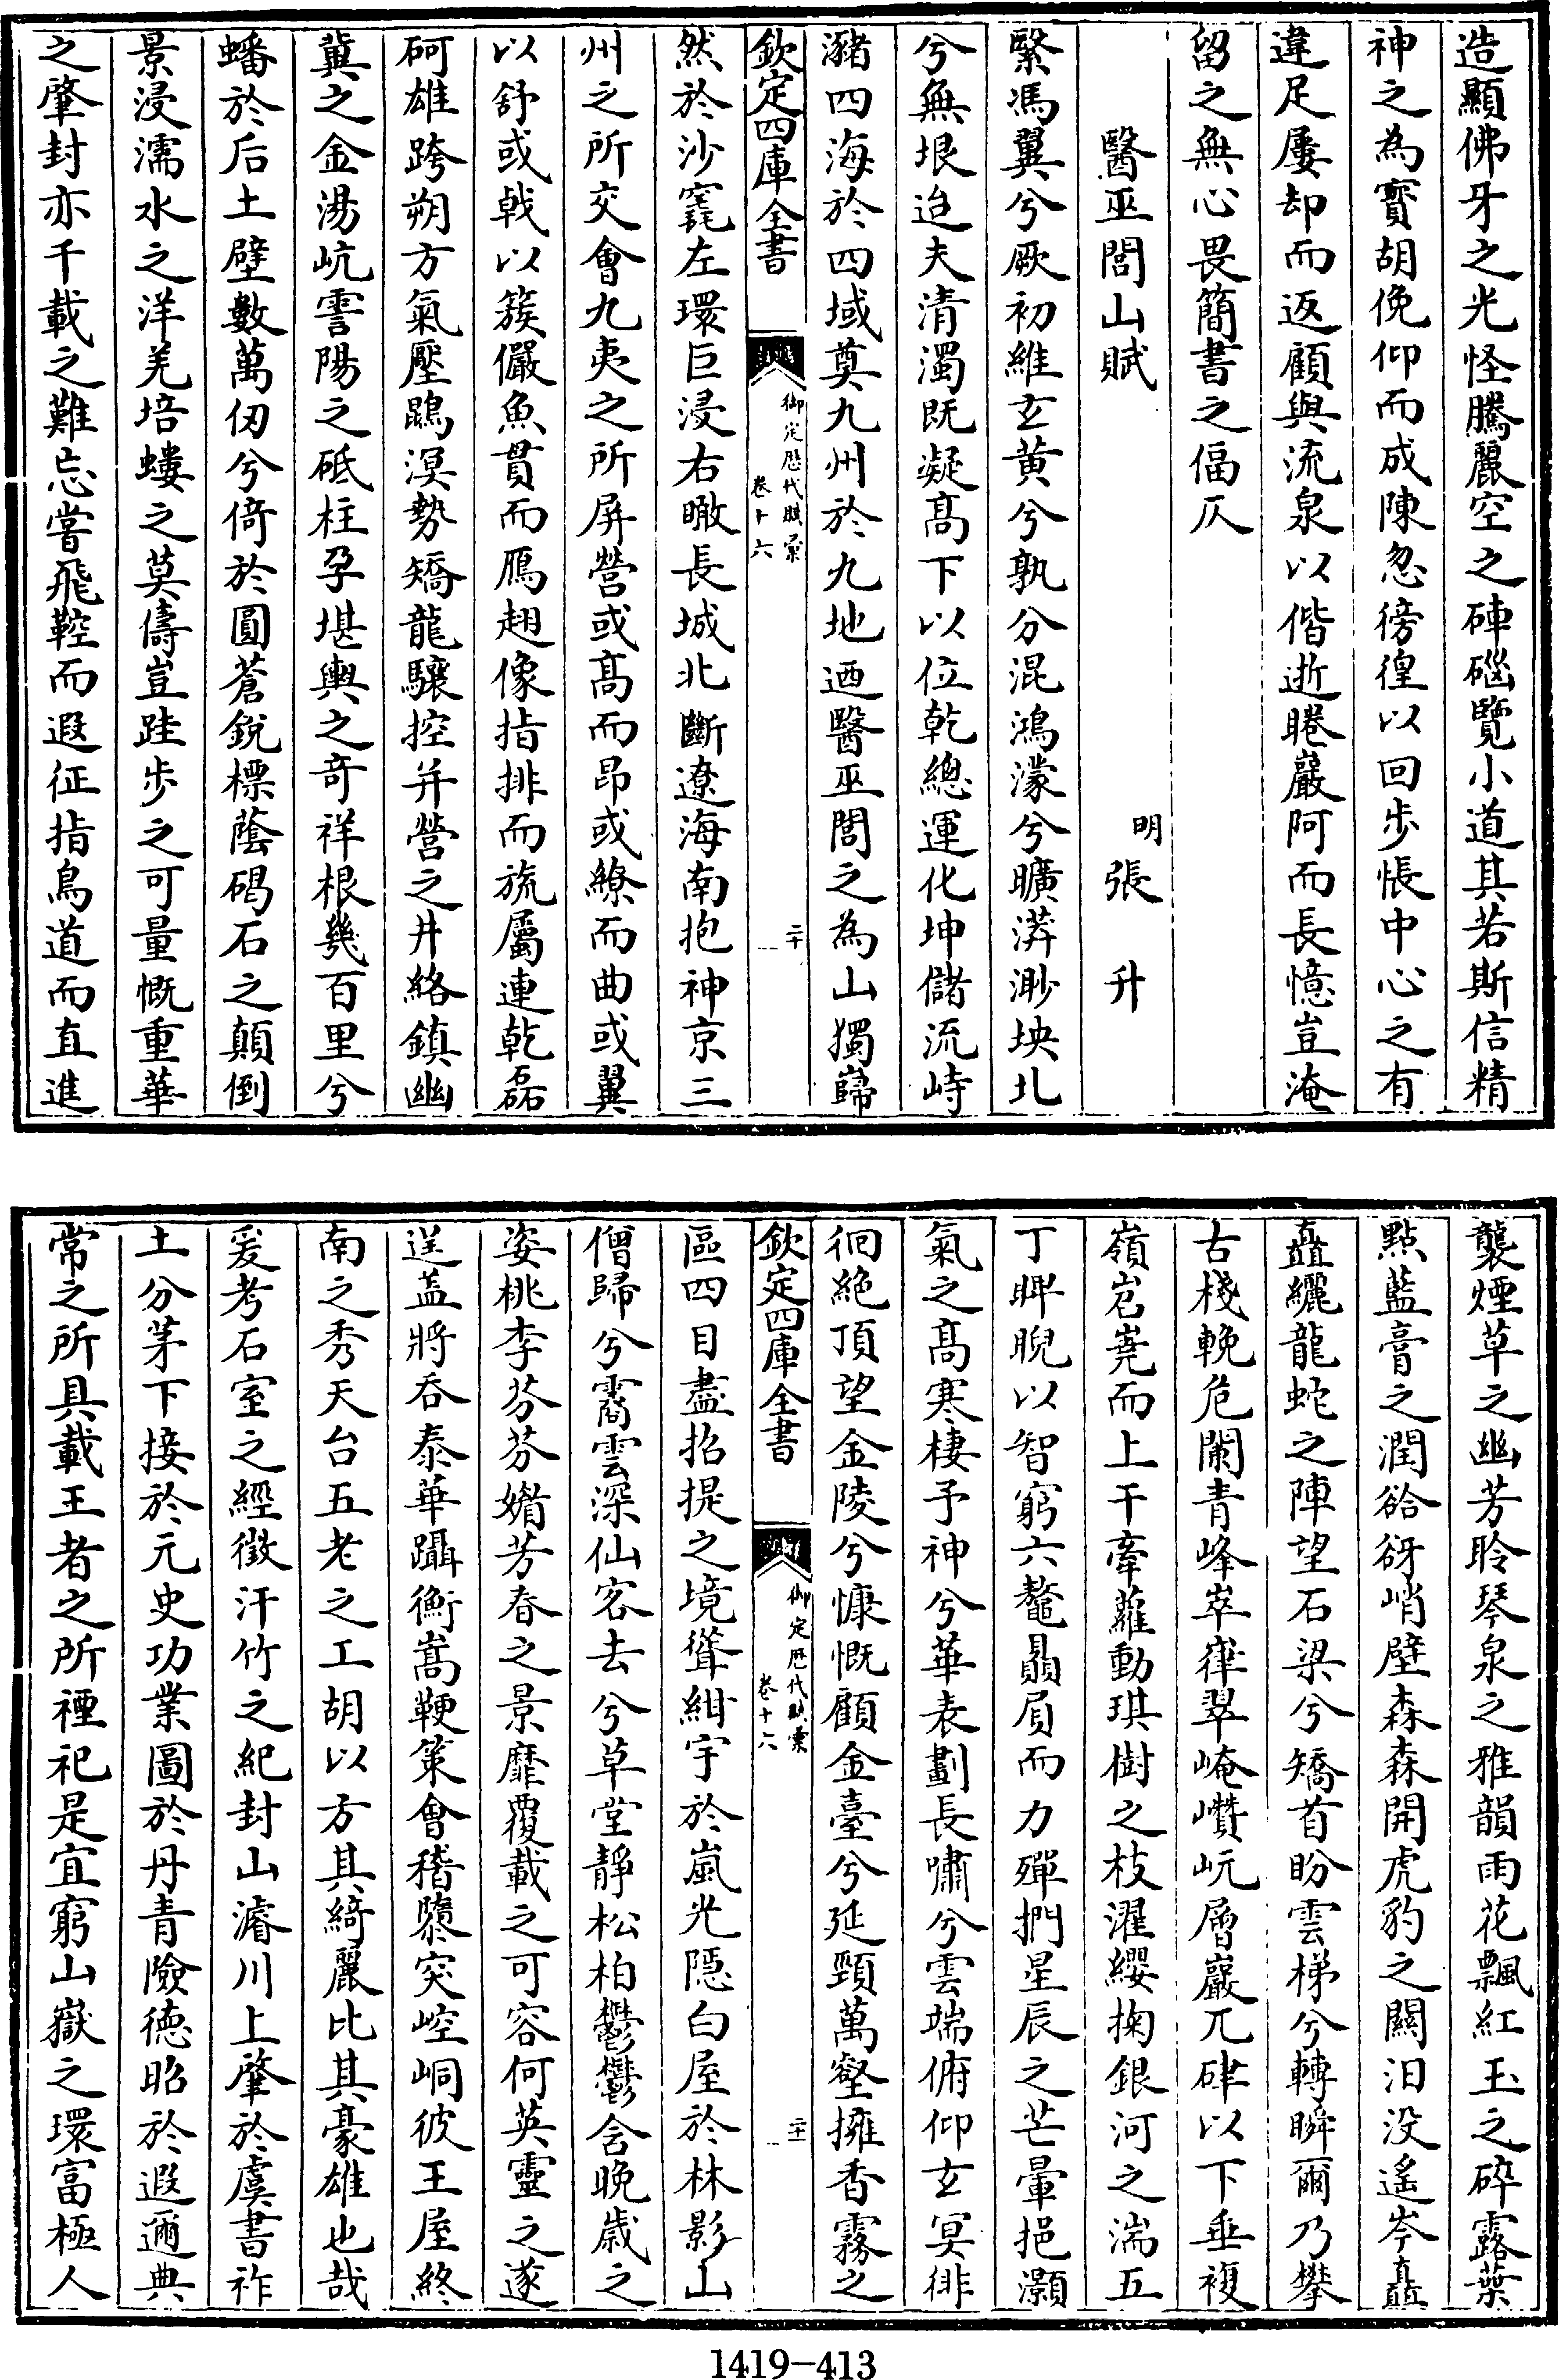 造顯佛牙之光怪騰麗空之硨磘覽小道其若斯信精
神之為寳胡俛仰而成陳忽徬徨以回步悵中心之有
違足屢却而返顧與流泉以偕逝睠巖阿而長憶豈淹
留之無心畏簡書之偪仄
醫巫閭山賦
明張　升
繄馮翼兮厥初維玄黃兮孰分混鴻濛兮曠漭渺坱圠
兮無垠迨夫清濁既凝髙下以位乾總運化坤儲流峙
瀦四海於四域奠九州於九地迺醫巫閭之為山獨巋
欽定四庫全書
御定歴代賦彙
卷十六
二十
然於沙窕左環巨浸右瞰長城北斷遼海南抱神京三
州之所交會九夷之所屏營或髙而昂或繚而曲或翼
以舒或戟以簇儼魚貫而鴈趐像指排而旒屬連乾磊
砢雄跨朔方氣壓鵾溟勢矯龍驤控并營之井絡鎮幽
冀之金湯岏霅陽之砥柱孕堪輿之奇祥根幾百里兮
蟠於后土壁數萬仭兮倚於圓蒼銳標蔭碣石之顛倒
景浸濡水之洋羌培塿之莫儔豈跬歩之可量慨重華
之肇封亦千載之難忘嘗飛鞚而遐征指鳥道而直進
襲煙草之幽芳聆琴泉之雅韻雨花飄紅玉之碎露葉
點藍膏之潤谽谺峭壁森森開虎豹之闗汨没遙岑矗
矗纚龍蛇之陣望石梁兮矯首盼雲梯兮轉瞬爾乃攀
古棧輓危闌青峰崒嵂翠崦巑岏層巖兀硉以下垂複
嶺岧嶤而上干牽蘿動琪樹之枝濯纓掬銀河之湍五
丁睥睨以智窮六鼇贔屓而力殫捫星辰之芒暈挹灝
氣之髙寒棲予神兮華表劃長嘯兮雲端俯仰玄冥徘
徊絶頂望金陵兮慷慨顧金臺兮延頸萬壑擁香霧之
欽定四庫全書
御定歴代賦彙
卷十六
二十一
區四目盡招提之境聳紺宇於嵐光隠白屋於林影山
僧歸兮靄雲深仙客去兮草堂靜松柏鬱鬱含晩歲之
姿桃李芬芬媚芳春之景靡覆載之可容何英靈之遂
逞盖將吞泰華躡衡嵩鞭策會稽隳突崆峒彼王屋終
南之秀天台五老之工胡以方其綺麗比其豪雄也哉
爰考石室之經徴汗竹之紀封山濬川上肇於虞書祚
土分茅下接於元史功業圖於丹青險徳昭於遐邇典
常之所具載王者之所禋祀是宜窮山嶽之環富極人
1419-413